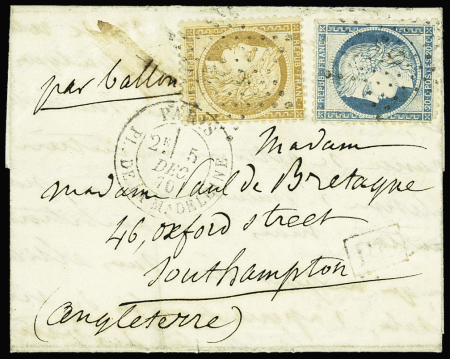 par ballon
REPUB. FRANC.
REPUB. FRANC.
20 C. POSTES 20 C.
PARIS
2E
5
DEC
70
PL. DE LA MADELEINE
Madam
madam Paul de Bretagne
46, oxford street
Southampton
(Angleterre)